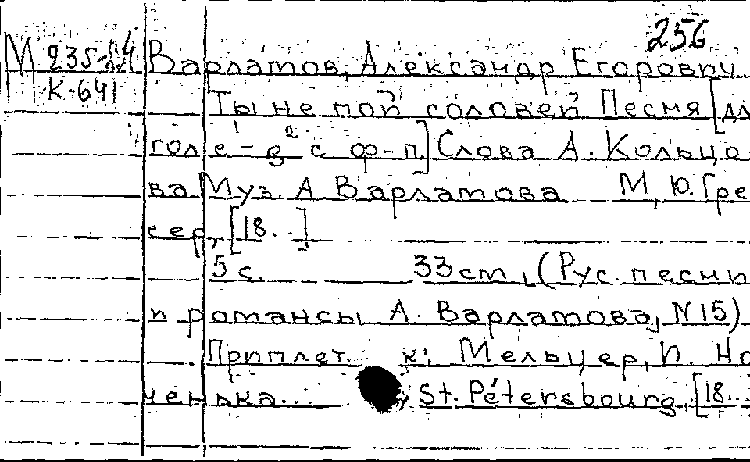 256
М 235-84 Варламов, Александр Егорович
К-641
Ты не пой соловей Песня [дл
гол e'-g² с ф-п.] Слова А. Кольцо-
ва Муз А Варламова М, Ю. Гре
сер, [18..]
5 с. 33 cm, (Рус. песни
и романсы А. Варламова, N 15)
Приплет. к: Мельцер, И. Но
ченька... St. Pétersbourg, [18..